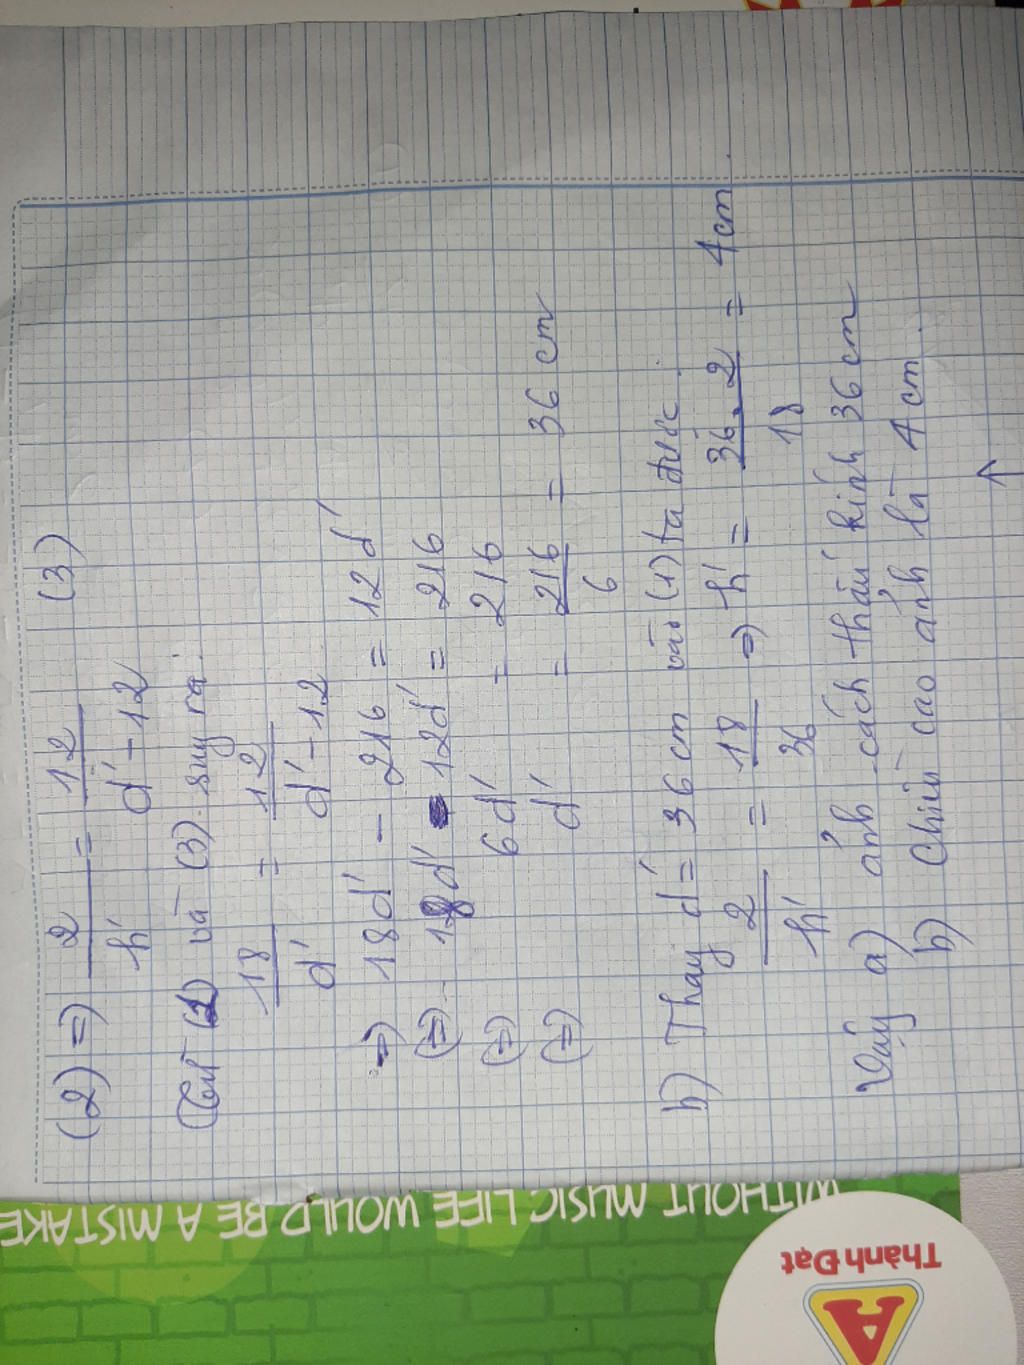 (2) => 2/h' = 12/d'-12 (3)
Từ (1) và (3) suy ra:
18/d' = 12/d'-12
=> 18d' - 216 = 12d'
(=) 18d' - 12d' = 216
(=) 6d' = 216
(=) d' = 216/6 = 36 cm
b) Thay d' = 36 cm vào (1) ta được:
2/h' = 18/36 => h' = 36.2/18 = 4cm.
Vậy a) ảnh cách thấu kính 36 cm
b) Chiều cao ảnh là 4 cm.
WITHOUT MUSIC LIFE WOULD BE A MISTAKE
Thành Đạt
A